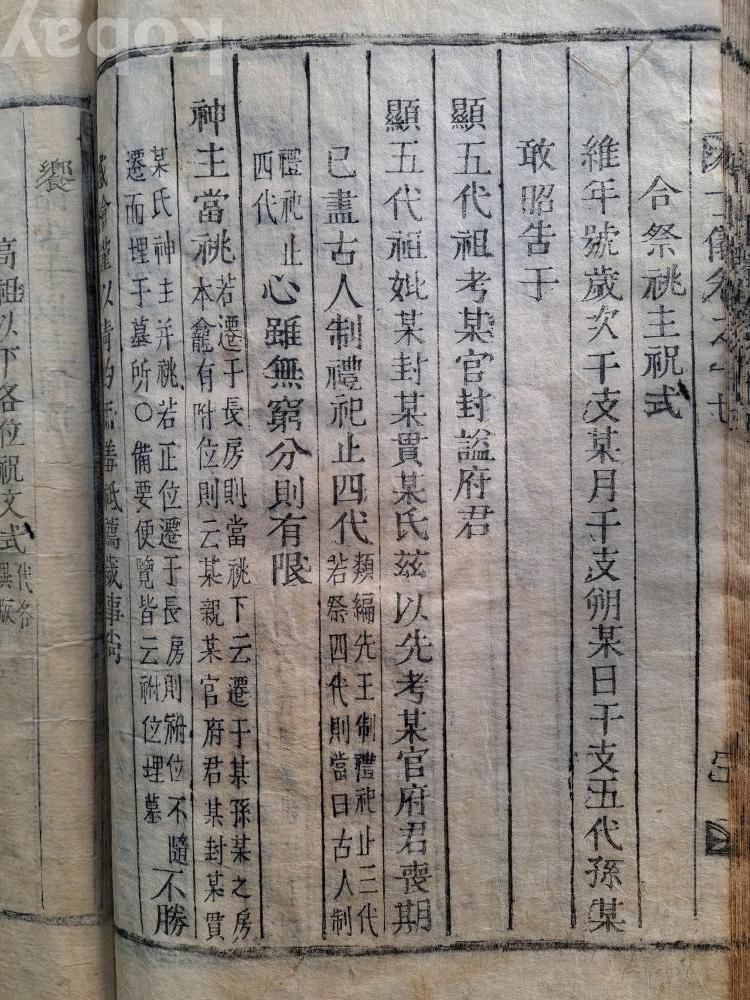 合祭祧主祝式
維年號歲次干支某月干支朔某日干支五代孫某
敢昭告于
顯五代祖考某官封諡府君
顯五代祖妣某封某貫某氏玆以先考某官府君喪期
已盡古人制禮祀止四代類編先王制禮祀止三代若祭四代則當曰古人制
禮祀止四代心雖無窮分則有限
神主當祧若遷于長房則當祧下云遷于某孫某之房本龕有附位則云某親某官府君某封某貫
某氏神主并祧若正位遷于長房則祔位不隨遷而埋于墓所○備要便覽皆云祔位埋墓不勝
感愴謹以淸酌庶羞祗薦歲事尙
饗
高祖以下各位祝文式
kobay